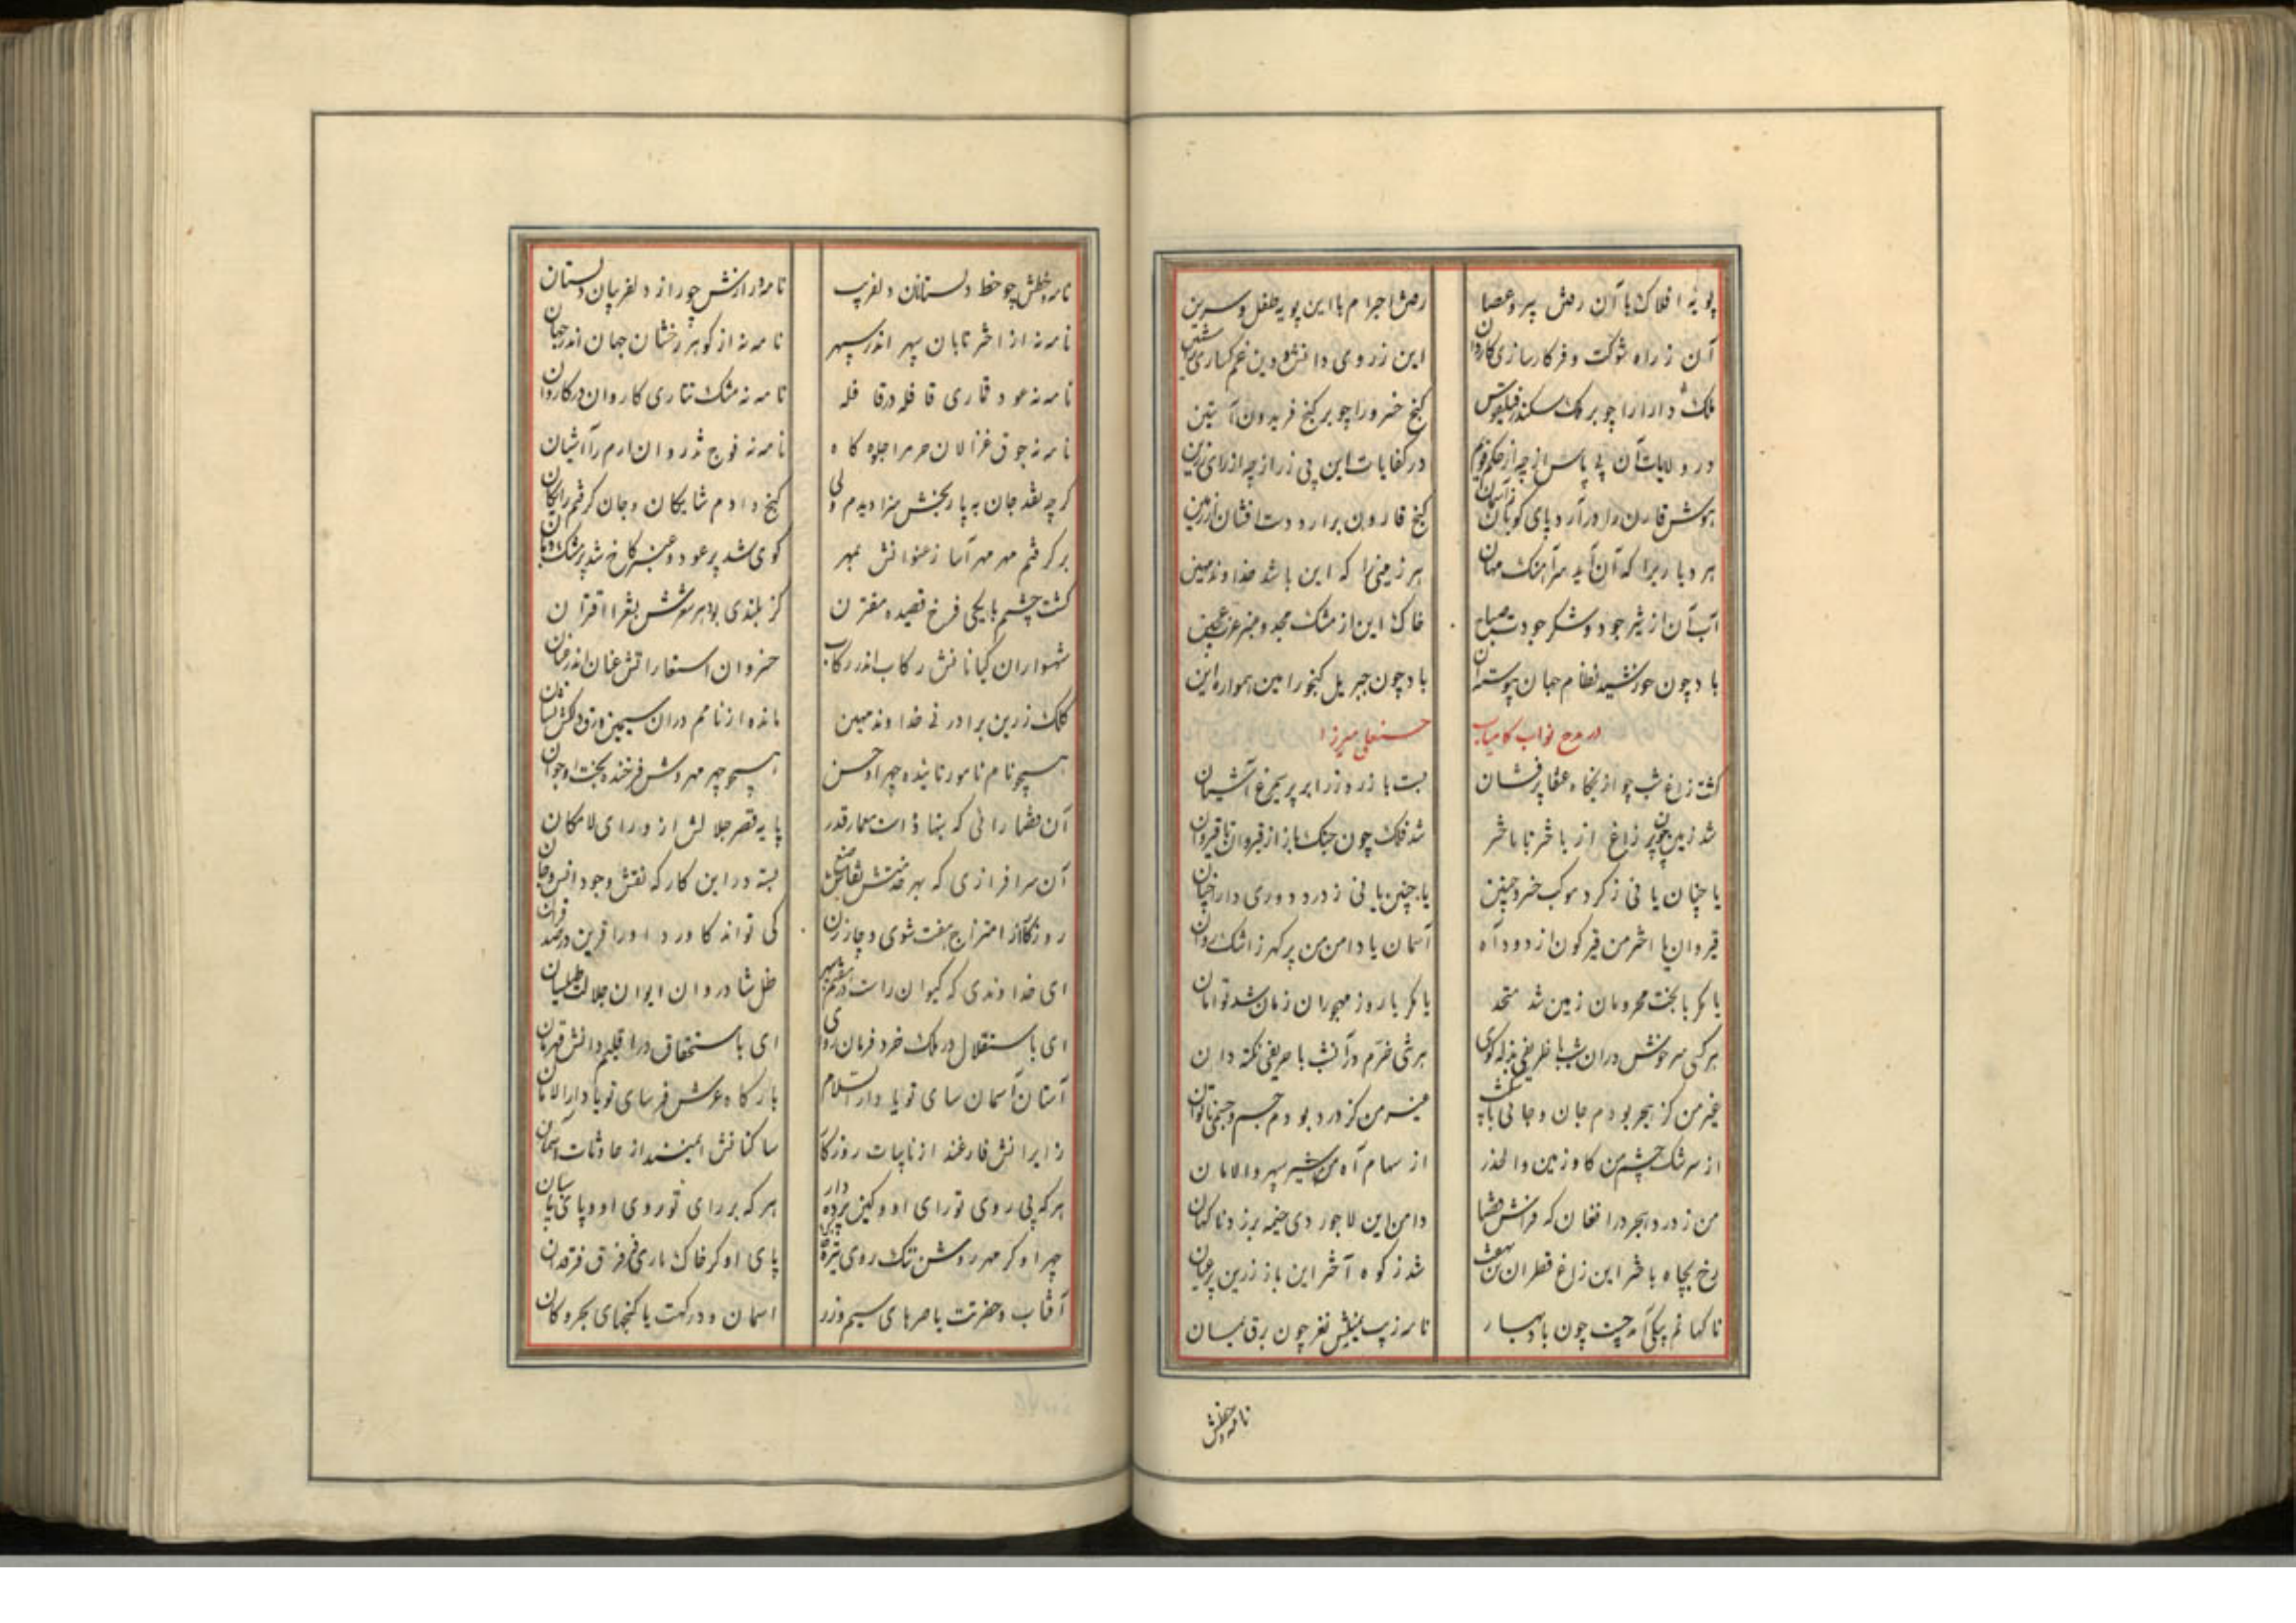 پویهٔ افلاک با آن رمش پیر و عصا رمش اجرام با این پویهٔ طفل و سرین
آن ز راه شوکت و فر کارسازی کاردان این ز روی دانش و دین غمگساری
ملک دارا را چو بر ملک سکندر فیلقوس گنج خسرو را چو بر گنج فریدون آبتین
در ولایات آن پی پاس از چه از حکم در کفایات این پی زر از چه از رای رزین
گنج قارون برآرد دست افشان از زمین
هر دیاریرا که آن آید سرآهنک مهان هر زمینی را که این باشد خداوند مهین
خاک این از مشک مجد و عنبر عزت عجین
باد چون خورشید نظام جهان پیوسته آن باد چون جبریل گنجور امین همواره این
در مدح نواب کامیاب حسنعلی میرزا
گشت زاغ شب چو از بنگاه عنقا پرفشان بست باز روز را بر پر سیمرغ آشیان
شد زمین چون پر زاغ از باختر تا باختر شد فلک چون چنگ باز از قیروان تا قیروان
یا چنان یا نی ز گرد موکب خسرو چنین یا چنین یا نی ز درد دوری دارا چنان
قیروان یا اختر من قیرگون از دود آه آسمان یا دامن من پر گهر ز اشک روان
یا مگر با بخت محرومان زمین شد متحد یا مگر با روز مهجوران زمان شد توامان
هر کسی سرخوش در ان شب با ظریفی بذله گوی هر شی خرم در آنشب با حریفی نکته دان
غیر من کز هجر بودم جان و جانی غیر من کز درد بودم جسم و جسمی ناتوان
از سرشک چشم من گاو زمین و الحذر از سهام آه من شیر سپهر و الامان
من ز درد هجر در افغان که فراش قضا دامن این لاجوردی خیمه بر زد ناگهان
رخ بچاه باختر این زاغ قطران شد ز کوه آخر این باز زرین پر عیان
ناگهانم پیکی آمد چست چون باد بهار نامهٔ زیب نغز چون برق یمان
نامه خطش چو خط دلستانان دلفریب نامه رازش چو راز دلفریبان دلستان
نامه نه از اختر تابان سپهر اندر سپهر نامه نه از گوهر رخشان جهان اندر جهان
نامه نه عود قماری قافله در قافله نامه نه مشک تتاری کاروان در کاروان
نامه نه جوق غزالان حرم را جلوه گاه نامه نه فوج تذروان ارم را آشیان
گرچه نقد جان به پا رنجش سزا دیدم ولی گنج دادم شایگان و جان گرفتم رایگان
برگرفتم مهر مهر آسا ز عنوانش بمهر کوی شد پر عود و عنبر کاخ شد پر مشک
گشت چشم با یکی فرخ قصیده مقترن کز بلندی بود هر شعرش بشعرا اقتران
شهسواران کیانانش رکاب اندر رکاب خسروان عنان اندر عنان
کلک زرین برادر نی خداوند مهین مانده از نامم در ان سیمین ورق دلکش نشان
همچو نام نامور تابنده چهر او حسن همچو چهر مهروش فرخنده بخت او جوان
آن قضا رائی که بنهاد است معمار قدر پایهٔ قصر جلالش از ورای لامکان
آن سرافرازی که بهر خدمتش نقاش صنع بسته در این کارگه نقش وجود انس و جان
روزگار از امتزاج هفت شوی و چار زن کی تواند کاورد او را قرین در صد قران
ای خداوندی که کیوان راست در هفتم سپهر ظل شادروان ایوان جلالت طیلسان
ای باستقلال در ملک خرد فرمان روای ای باستحقاق در اقلیم دانش قهرمان
آستان آسمان سای تو یا دار السلام بارگاه عرش فرسای تو یا دار الامان
زایرانش فارغند از نایبات روزگار ساکنانش ایمنند از حادثات آسمان
هر که پی روی تو رای او و کین پرده دار هر که بر رای تو روی او و پای
چهر او گر مهر روشن تنک روی تیره پای او گر خاک باری فرق فرقدان
آفتاب و حضرتت یا صره‌های سیم و زر آسمان و درگهت یا گنجهای بحر و کان
نامه خطش